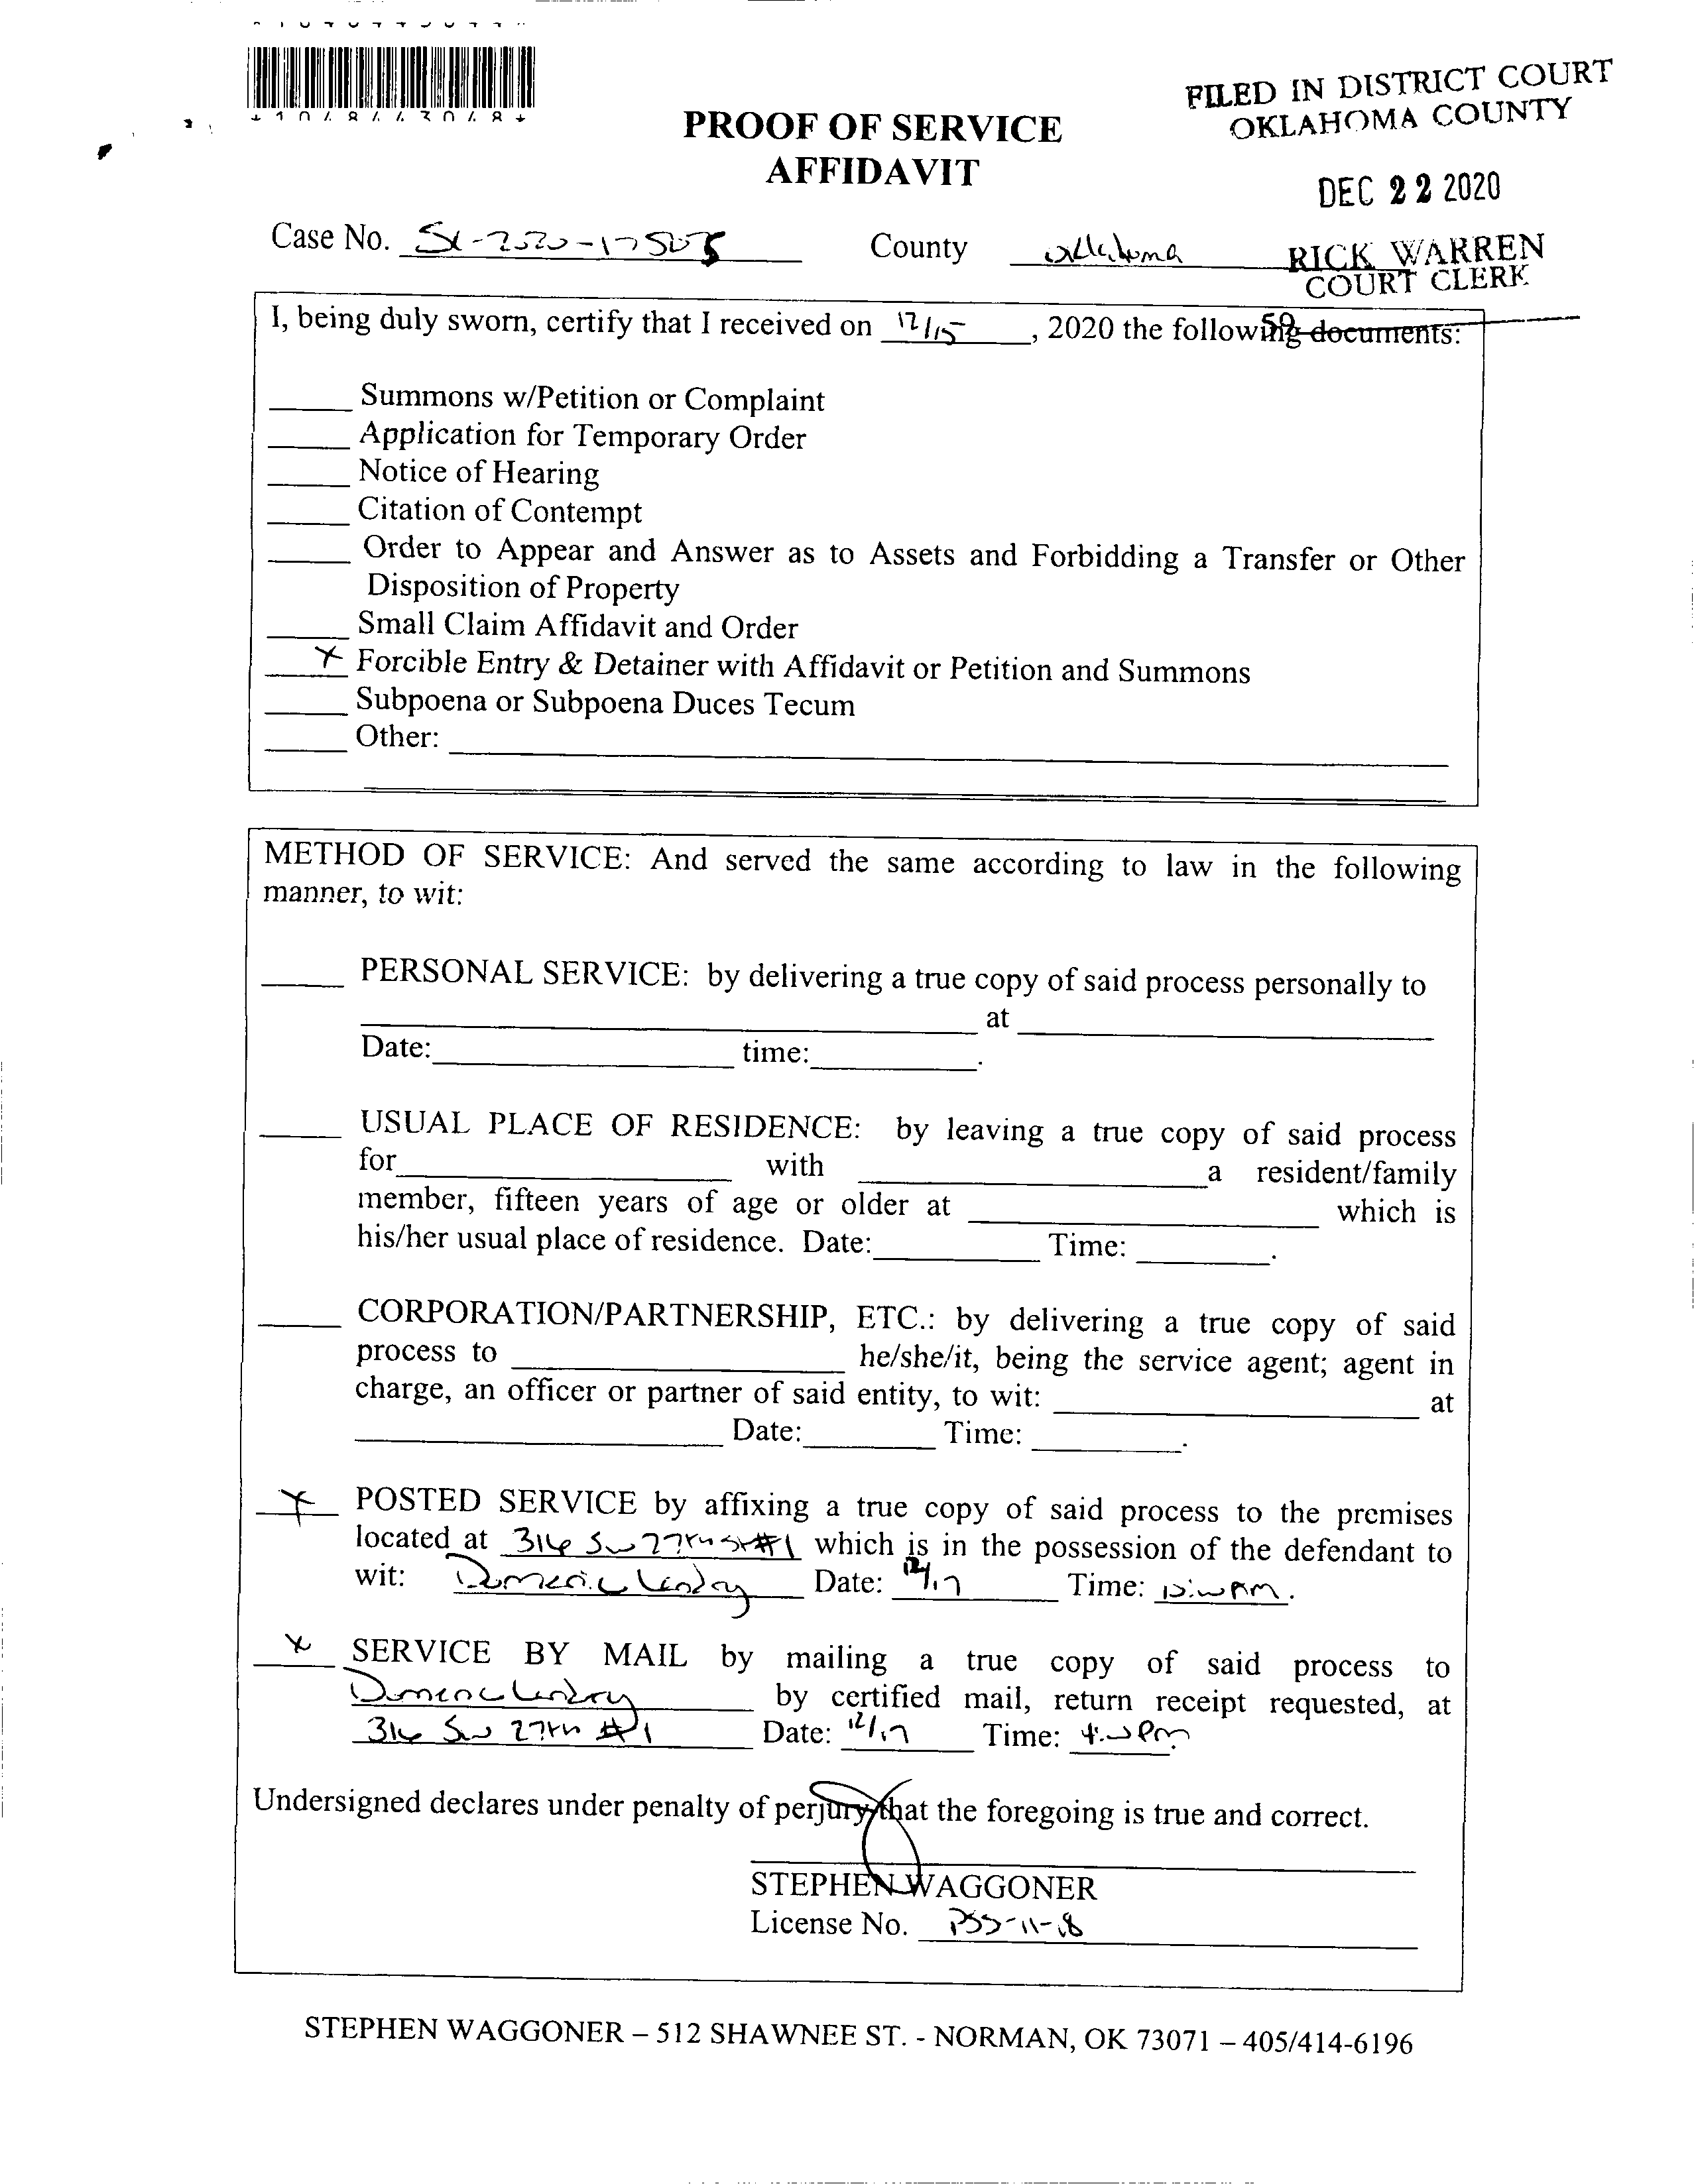 *1048443048*
FILED IN DISTRICT COURT
OKLAHOMA COUNTY
PROOF OF SERVICE
AFFIDAVIT
DEC 22 2020
Case No. SC-2020-17505 County Oklahoma
RICK WARREN
COURT CLERK
I, being duly sworn, certify that I received on 12/15, 2020 the following documents:
59
Summons w/Petition or Complaint
Application for Temporary Order
Notice of Hearing
Citation of Contempt
Order to Appear and Answer as to Assets and Forbidding a Transfer or Other
Disposition of Property
Small Claim Affidavit and Order
X Forcible Entry & Detainer with Affidavit or Petition and Summons
Subpoena or Subpoena Duces Tecum
Other:
METHOD OF SERVICE: And served the same according to law in the following
manner, to wit:
PERSONAL SERVICE: by delivering a true copy of said process personally to
at
Date: time: .
USUAL PLACE OF RESIDENCE: by leaving a true copy of said process
for with a resident/family
member, fifteen years of age or older at which is
his/her usual place of residence. Date: Time: .
CORPORATION/PARTNERSHIP, ETC.: by delivering a true copy of said
process to he/she/it, being the service agent; agent in
charge, an officer or partner of said entity, to wit: at
Date: Time: .
X POSTED SERVICE by affixing a true copy of said process to the premises
located at 316 SW 27th St #1 which is in the possession of the defendant to
wit: Domenic Landry Date: 12/17 Time: .
X SERVICE BY MAIL by mailing a true copy of said process to
Domenic Landry by certified mail, return receipt requested, at
316 SW 27th #1 Date: 12/17 Time: PM.
Undersigned declares under penalty of perjury that the foregoing is true and correct.
STEPHEN WAGGONER
License No. PSS-11-18
STEPHEN WAGGONER – 512 SHAWNEE ST. - NORMAN, OK 73071 – 405/414-6196